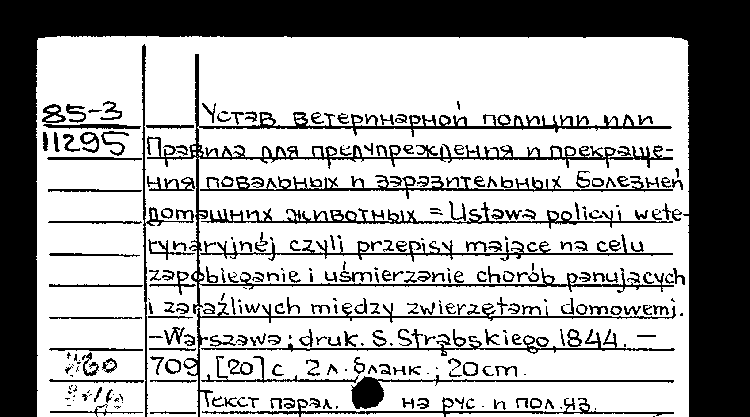 85-3 Устав ветеринарной полиции, или
11295 Правила для предупреждения и прекраще-
ния повальных и заразительных болезней
домашних животных = Ustawa policyi wete-
rynaryjnéj czyli przepisy mające na celu
zapobieganie i uśmierzanie chorób panujących
i zaraźliwych między zwierzętami domowemi.
-Warszawa; druk. S. Strąbskiego, 1844. —
709, [20] с., 2 л. бланк.; 20 cm.
Текст парал. на рус. и пол. яз.